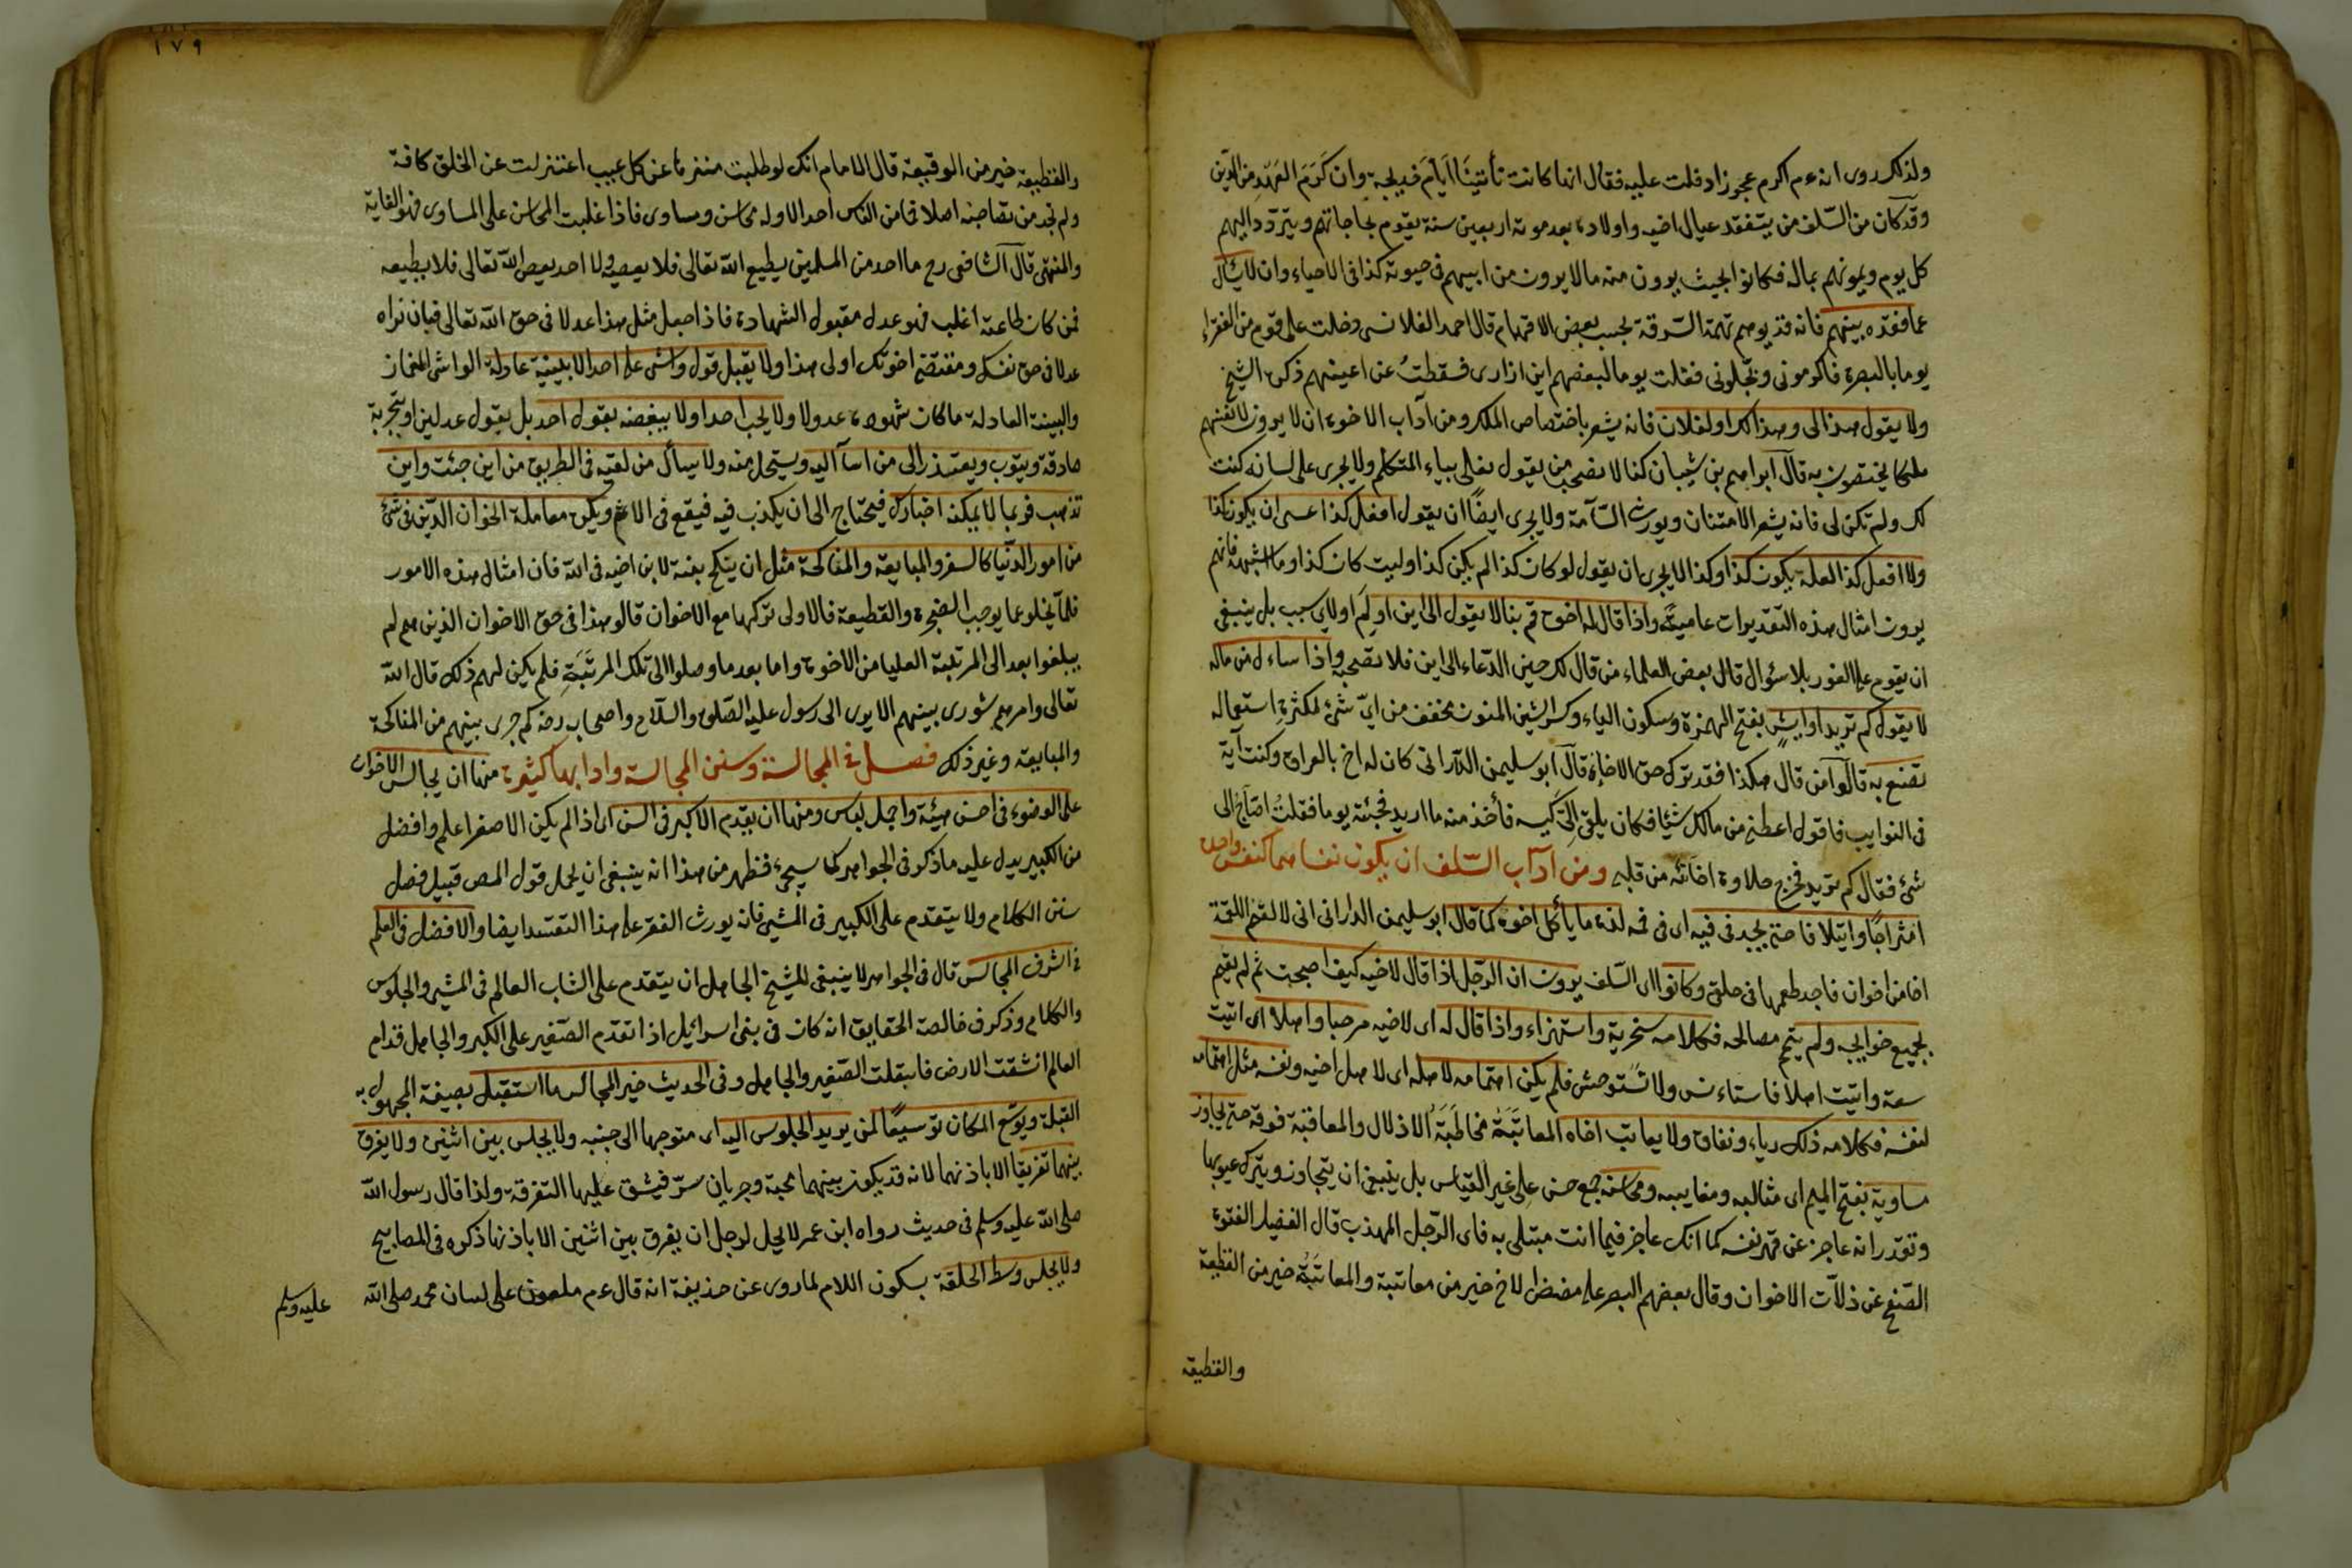 ولذلك روى انه عم اكرم عجوزا دخلت عليه فقال انها كانت تأتينا ايام خديجة وان كرم العهد من الدين
وقد كان من السلف من يتفقد عيال اخيه واولاده بعد موته اربعين سنة يقوم بحاجاتهم ويتردد اليهم
كل يوم ويمونهم بماله فكانوا بحيث يرون منه ما لا يرون من ابيهم فى حيوته كذا فى الاحياء وان لا يسأل
عما فقده بينهم فانه قد يوهم تهمة السرقة بحسب بعض الافهام قال احمد القلانسى دخلت على قوم من الفقراء
يوما بالبصرة فاكرمونى وبجلونى فقلت يوما لبعضهم اين ازارى فسقطت عن اعينهم ذكره الشيخ
ولا يقول هذا لى وهذا لك او لفلان فانه يشعر باختصاص الملك ومن آداب الاخوة ان لا يرون لانفسهم
ملكا يختصون به قال ابراهيم بن شيبان كنا لا نصحب من يقول نعلى بياء المتكلم ولا يجرى على لسانه كنت
لك ولم تكن لى فانه يشعر الامتنان ويورث السآمة ولا يجرى ايضا ان يقول افعل كذا عسى ان يكون كذا
ولا افعل كذا لعله يكون كذا وكذا لا يجرى ان يقول لو كان كذا لم يكن كذا وليت كان كذا وما اشبهه فانهم
يرون امثال هذه التقديرات عامية واذا قال له اخوه قم بنا لا يقول الى اين او لم او لاى سبب بل ينبغى
ان يقوم على الفور بلا سؤال قال بعض العلماء من قال لك حين الدعاء الى اين فلا تصحبه واذا ساءل من ماله
لا يقول كم تريد او ايش بفتح الهمزة وسكون الياء وكسر الشين المنون مخفف من اى شئ لكثرة استعماله
تصنع به قالوا من قال هكذا فقد ترك حق الاخاء قال ابو سليمن الدارانى كان له اخ بالعراق وكنت آتيه
فى النوايب فاقول اعطنى من مالك شيئا فكان يلقى الى كيسه فأخذ منه ما اريد فجئته يوما فقلت احتاج الى
شئ فقال كم تريد فخرج حلاوة اخائه من قلبى ومن آداب السلف ان يكون نفساهما كنفس واحدة
امتزاجا وايتلافا حتى يجد فى فيه اى فى فمه لذة ما يأكل اخوه كما قال ابو سليمن الدارانى انى لالقم اللقمة
اخا من اخوان فاجد طعمها فى حلقى وكانوا اى السلف يرون ان الرجل اذا قال لاخيه كيف اصبحت ثم لم يقم
بجميع حوايجه ولم يتم مصالحه فكلامه سخرية واستهزاء واذا قال له اى لاخيه مرحبا واهلا اى اتيت
سعة واتيت اهلا فاستاءنس ولا تستوحش فلم يكن اهتمامه لاهله اى لاهل اخيه ونفسه مثل اهتمامه
لنفسه فكلامه ذلك رياء ونفاق ولا يعاتب اخاه المعاتبة مخاطبة الاذلال والمعاقبة فوقه حتى يجاوز
مساويه بفتح الميم اى مثالبه ومعايبه ومحاسنه جمع حسن على غير القياس بل ينبغى ان يتجاوز ويترك عيوبها
وتقدر انه عاجز عن قهر نفسه كما انك عاجز فيما انت مبتلى به فاى الرجل المهذب قال الفضيل الفتوة
الصفح عن زلات الاخوان وقال بعضهم الصبر على مضض الاخ خير من معاتبة والمعاتبة خير من القطيعة
والقطيعة
١٧٩
والقطيعة خير من الوقيعة قال الامام انك لو طلبت منزها عن كل عيب اعتزلت عن الخلق كافة
ولم تجد من تصاحبه اصلا فما من الناس احد الا وله محاسن ومساوى فاذا غلبت المحاسن على المساوى فهو الغاية
والمنتهى قال الشافعى رح ما احد من المسلمين يطيع الله تعالى فلا يعصيه ولا احد يعصى الله تعالى فلا يطيعه
فمن كان طاعته اغلب فهو عدل مقبول الشهادة فاذا جعل مثل هذا عدلا فى حق الله تعالى فبان تراه
عدلا فى حق نفسك ومقتضى اخوتك اولى هذا ولا يقبل قول واش على احد الا ببينة عادلة الواشى الغماز
والبينة العادلة ما كان شهوده عدولا ولا يحب احدا ولا يبغضه بقول احد بل بقول عدلين او بتجربة
صادقة ويتوب ويعتذر الى من اساء اليه ويستحل منه ولا يسأل من لقيه فى الطريق من اين جئت واين
تذهب فربما لا يمكنه اخبارك فيحتاج الى ان يكذب فيه فيقع فى الاثم ويكره معاملة اخوان الدين فى شئ
من امور الدنيا كالسفر والمبايعة والمناكحة مثل ان ينكح بنته لابن اخيه فى الله فان امثال هذه الامور
قلما يخلو عما يوجب الضجرة والقطيعة فالاولى تركها مع الاخوان قالو هذا فى حق الاخوان الذين هم لم
يبلغوا بعد الى المرتبة العليا من الاخوة واما بعد ما وصلوا الى تلك المرتبة فلم يكن لهم ذلك قال الله
تعالى وامرهم شورى بينهم الا يرى الى رسول عليه الصلوة والسلام واصحابه رضه كم جرى بينهم من المناكحة
والمبايعة وغير ذلك فصل فى المجالسة وسنن المجالسة وادابها كثيرة منها ان يجالس الاخوان
على الوضوء فى احسن هيئة واجمل لباس ومنها ان يقدم الاكبر فى السن اى اذا لم يكن الاصغر اعلم وافضل
من الكبير يدل عليه ما ذكر فى الجواهر كما سيجئ فظهر من هذا انه ينبغى ان يحمل قول المص قبيل فصل
سنن الكلام ولا يتقدم على الكبير فى المشى فانه يورث الفقر على هذا التقييد ايضا والافضل فى العلم
فى اشرف المجالس قال فى الجواهر لا ينبغى للشيخ الجاهل ان يتقدم على الشاب العالم فى المشى والجلوس
والكلام وذكر فى خالصة الحقايق انه كان فى بنى اسرائيل اذا تقدم الصغير على الكبير والجاهل قدام
العالم انشقت الارض فابتلعت الصغير والجاهل وفى الحديث خير المجالس ما استقبل بصيغة المجهول به
القبلة ويوسع المكان توسيعا لمن يريد الجلوس اليه اى متوجها الى جنبه ولا يجلس بين اثنين ولا يفرق
بينهما تفريقا الا باذنهما لانه قد يكون بينهما محبة وجريان سر فيشق عليها التفرقة ولذا قال رسول الله
صلى الله عليه وسلم فى حديث رواه ابن عمر لا يحل لرجل ان يفرق بين اثنين الا باذنهما ذكره فى المصابيح
ولا يجلس وسط الحلقة بسكون اللام لما روى عن حذيفة انه قال عم ملعون على لسان محمد صلى الله
عليه وسلم